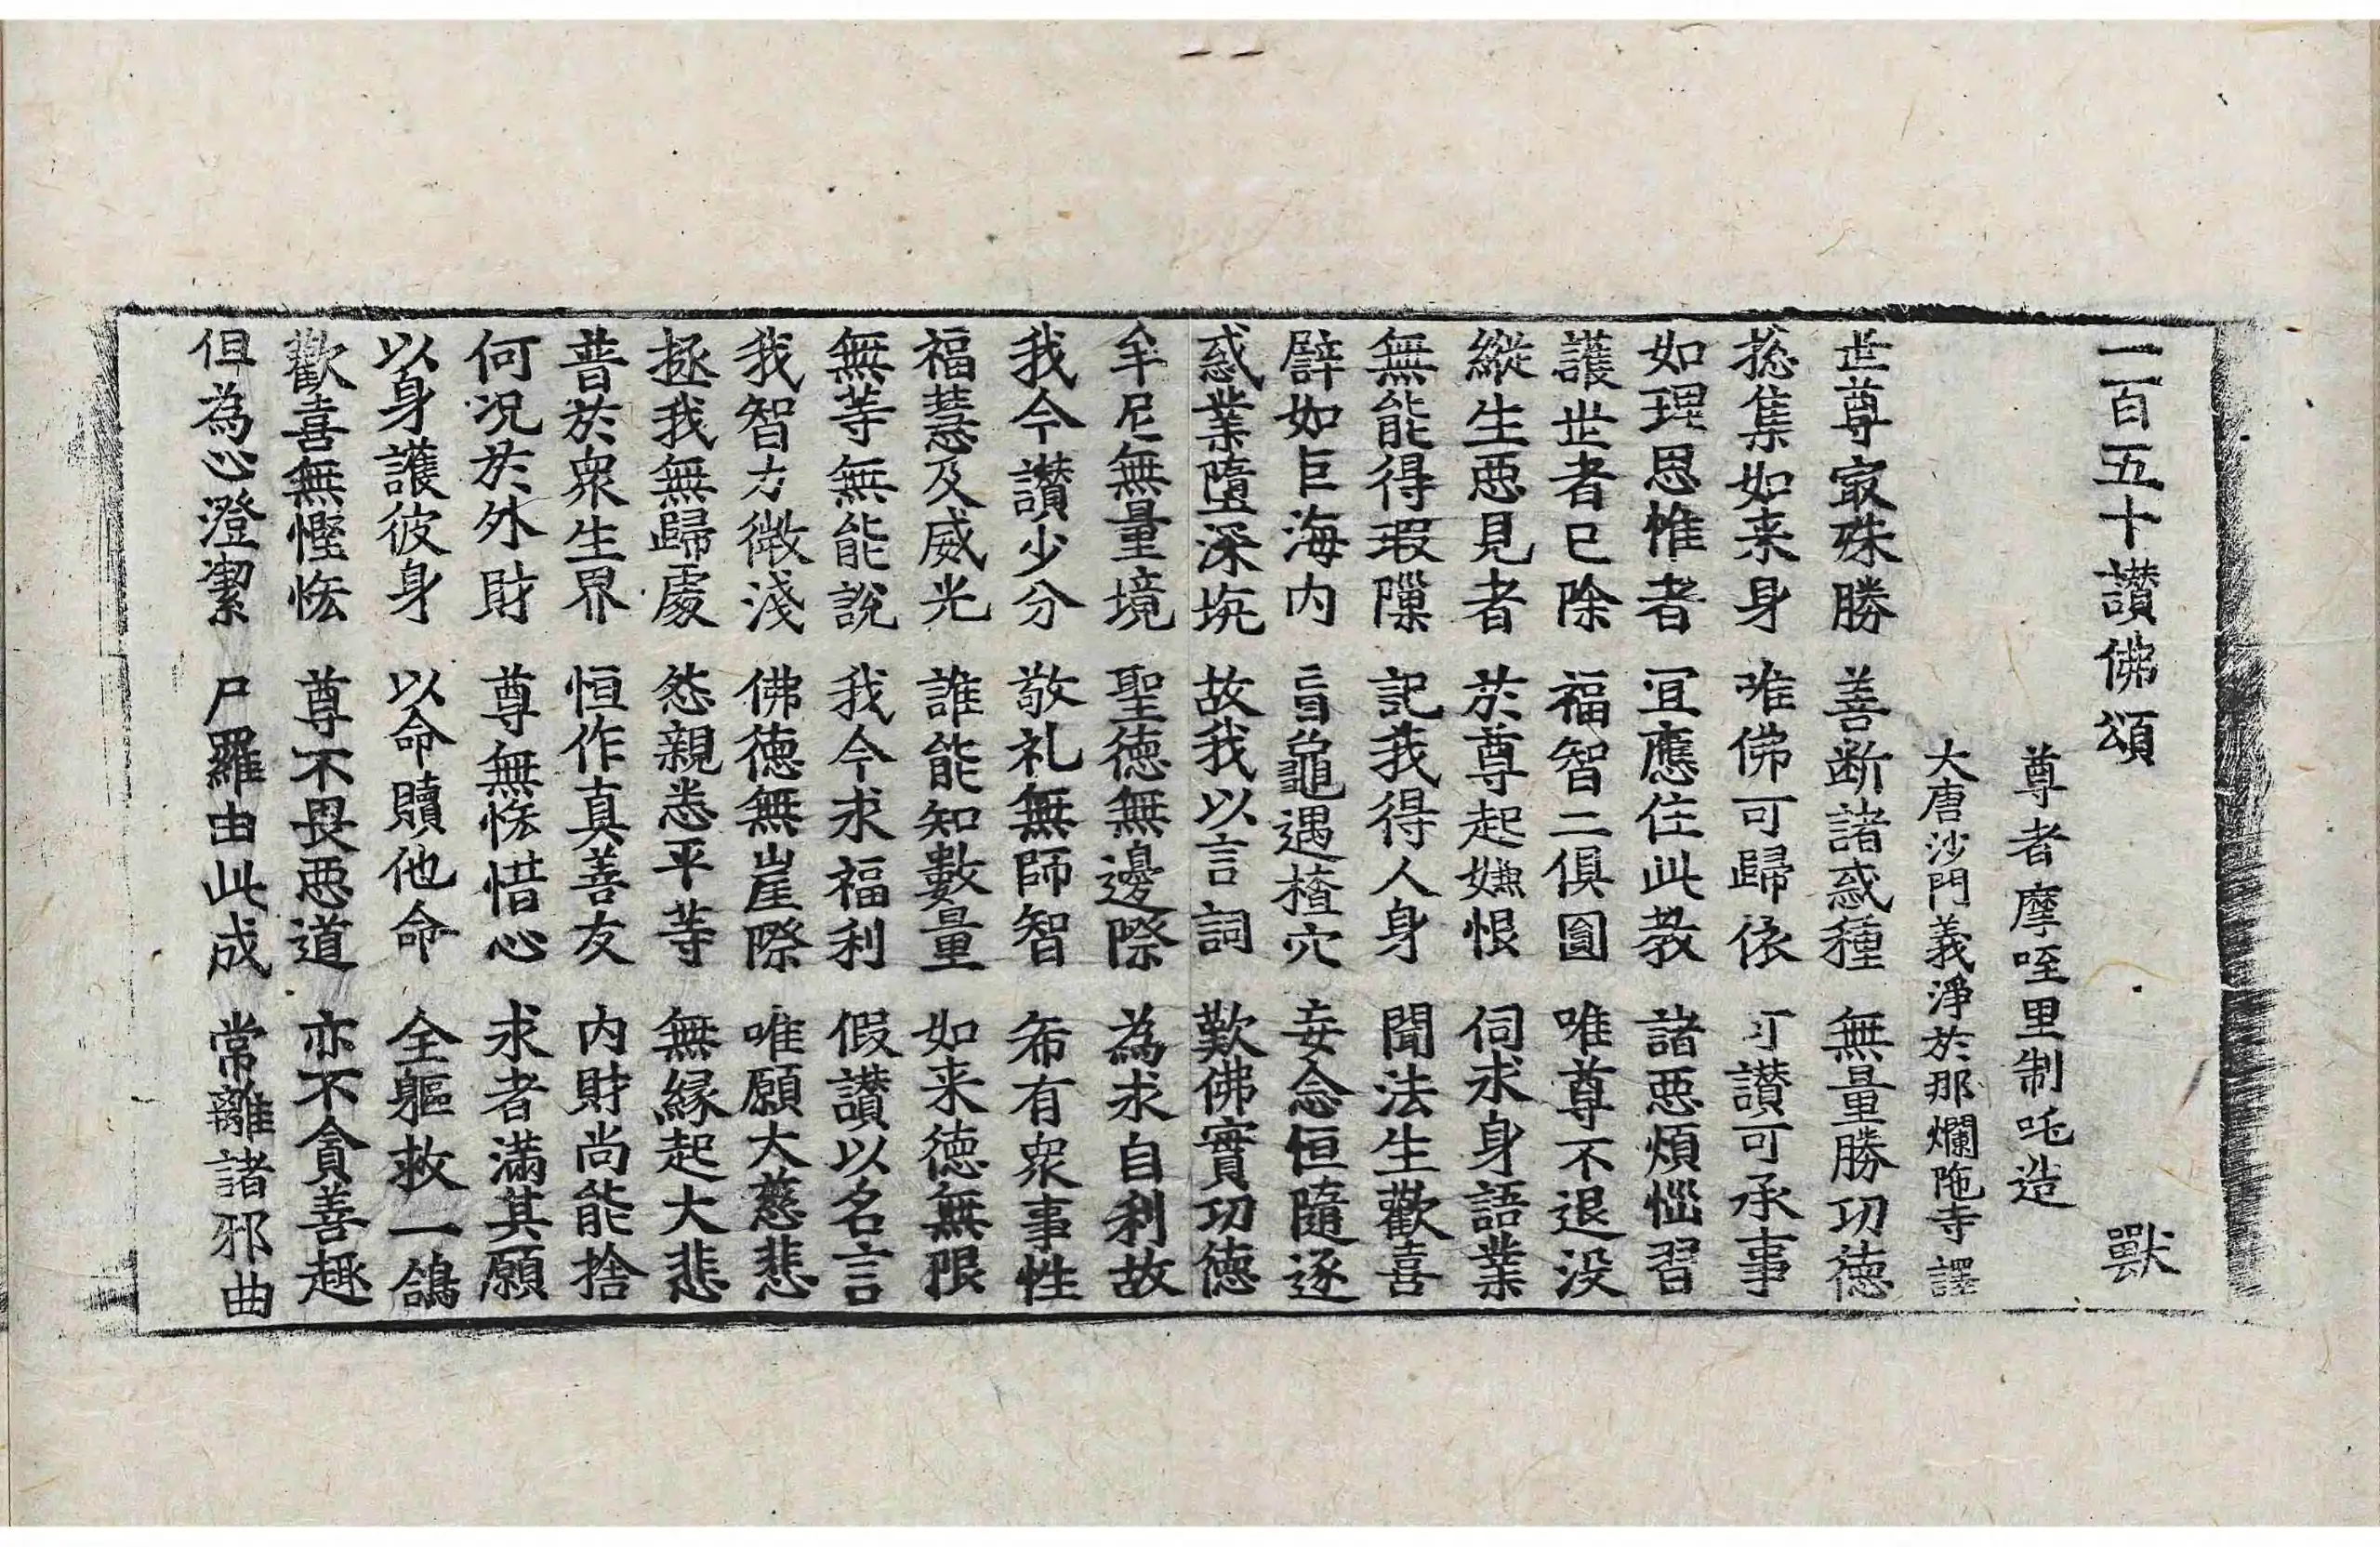 一百五十讃佛頌 獸
尊者摩咥里制吒造
大唐沙門義淨於那爛陁寺譯
世尊㝡殊勝 善断諸惑種 無量勝功徳
揔集如来身 唯佛可歸依 可讃可承事
如理思惟者 冝應住此教 諸惡煩惱習
護世者已除 福智二俱圓 唯尊不退没
縱生惡見者 於尊起嫌恨 伺求身語業
無能得瑕隟 記我得人身 聞法生歡喜
譬如巨海内 盲龜遇楂穴 妄念恒隨逐
惑業墮深坑 故我以言詞 歎佛實功徳
牟尼無量境 聖徳無邊際 為求自利故
我今讃少分 敬礼無師智 希有衆事性
福慧及威光 誰能知數量 如来徳無限
無等無能說 我今求福利 假讃以名言
我智力微淺 佛徳無崖際 唯願大慈悲
拯我無歸處 怨親悉平等 無縁起大悲
普於衆生界 恒作真善友 内財尚能捨
何况於外財 尊無悋惜心 求者滿其願
以身護彼身 以命贖他命 全軀救一鴿
歡喜無慳悋 尊不畏惡道 亦不貪善趣
但為心澄潔 尸羅由此成 常離諸邪曲